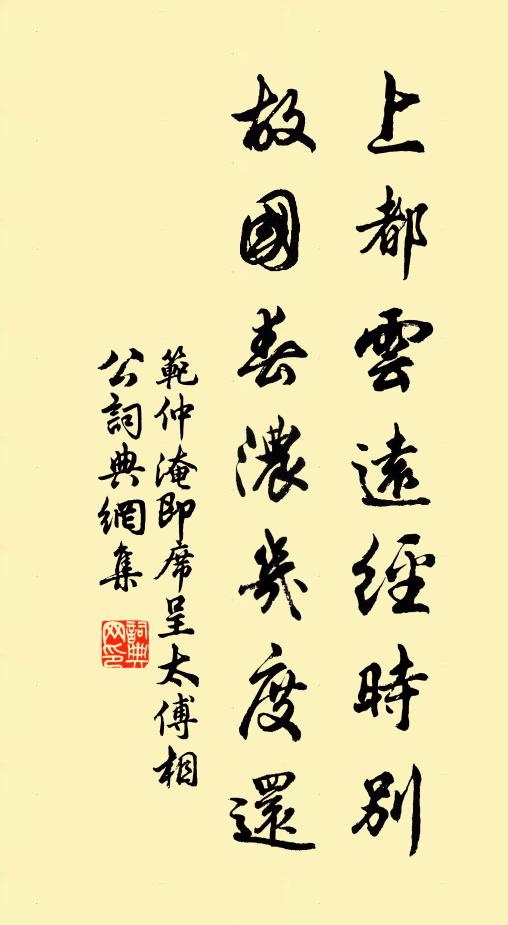 上都雲遠經時別
故國春濃幾度還
範仲淹即席呈太傅相
公詞典網集
詞典
网印